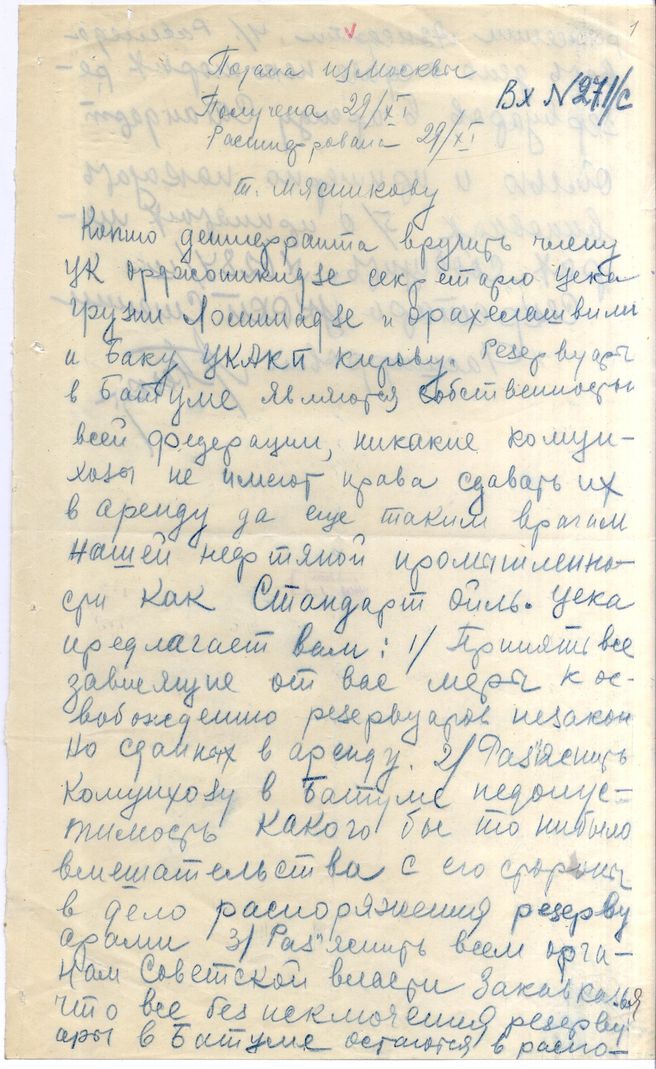 1
Подана из Москвы
Вх N 271/с
Получена 29/XI
Расшифрована 29/XI
т. Мясникову
Копию дешифранта вручить члену
ЦК Орджоникидзе секретарю цека
Грузии Ломинадзе и Орахелашвили
и Баку ЦКАКП Кирову. Резервуары
в Батуме являются собственностью
всей федерации, никакие комун-
хозы не имеют права сдавать их
в аренду да еще таким врагам
нашей нефтяной промышленно-
сти как Стандарт Ойль. Цека
предлагает вам: 1/ Принять все
зависящие от вас меры к ос-
вобождению резервуаров незакон
но сданных в аренду. 2/ Раз"яснить
Комунхозу в Батуме недопус-
тимость какого бы то нибыло
вмешательства с его стороны
в дело распоряжения резерву
арами 3/ Раз"яснить всем орга-
нам Советской власти Закавказья
что все без исключения резерву
ары в Батуме остаются в распо-